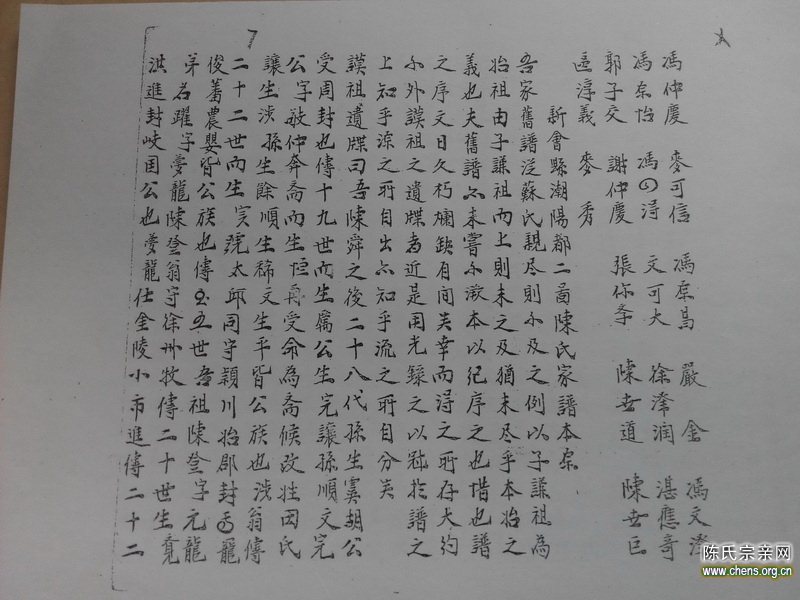 馮仲慶 麥可信 馮宗昌 嚴金 馮文澄
馮宗怡 馮四㝵 文可大 徐澤潤 湛應奇
郭子交 謝仲慶 張弥季 陳世道 陳世巨
區淳義 麥秀
新會縣潮陽都二啚陳氏家譜本宗
吾家舊譜從蘇氏親尽則小及之例以子謙祖為
始祖由子謙祖而上則未之及猶未尽乎本始之
義也夫舊譜亦未嘗小溯本以紀序之也惜也譜
之序文日久朽爛缺有间矣幸而㝵之所存大約
小外謨祖之遺牒為近是用光錄之以冠於譜之
上知乎淙之所自出亦知乎流之所自分矣
謨祖遺牒曰吾陳舜之後二十八代孫生寞胡公
受周封也傳十九世而生厲公生完讓孫順文完
公字敏仲奔斎而生恒再受命為斎候改姓田氏
讓生涉孫生餘順生稀文生平皆公族也涉翁傳
二十二世而生寔號太邱同守潁川始郡封
俊蕃農嬰皆公族也傳五世吾祖陳登字元龍
弟名躍字夢龍陳登翁守徐州牧傳二十世生覔
洪進封岐国公也夢龍仕金陵小市進傳二十二
7
陈氏宗亲网
www.chens.org.cn